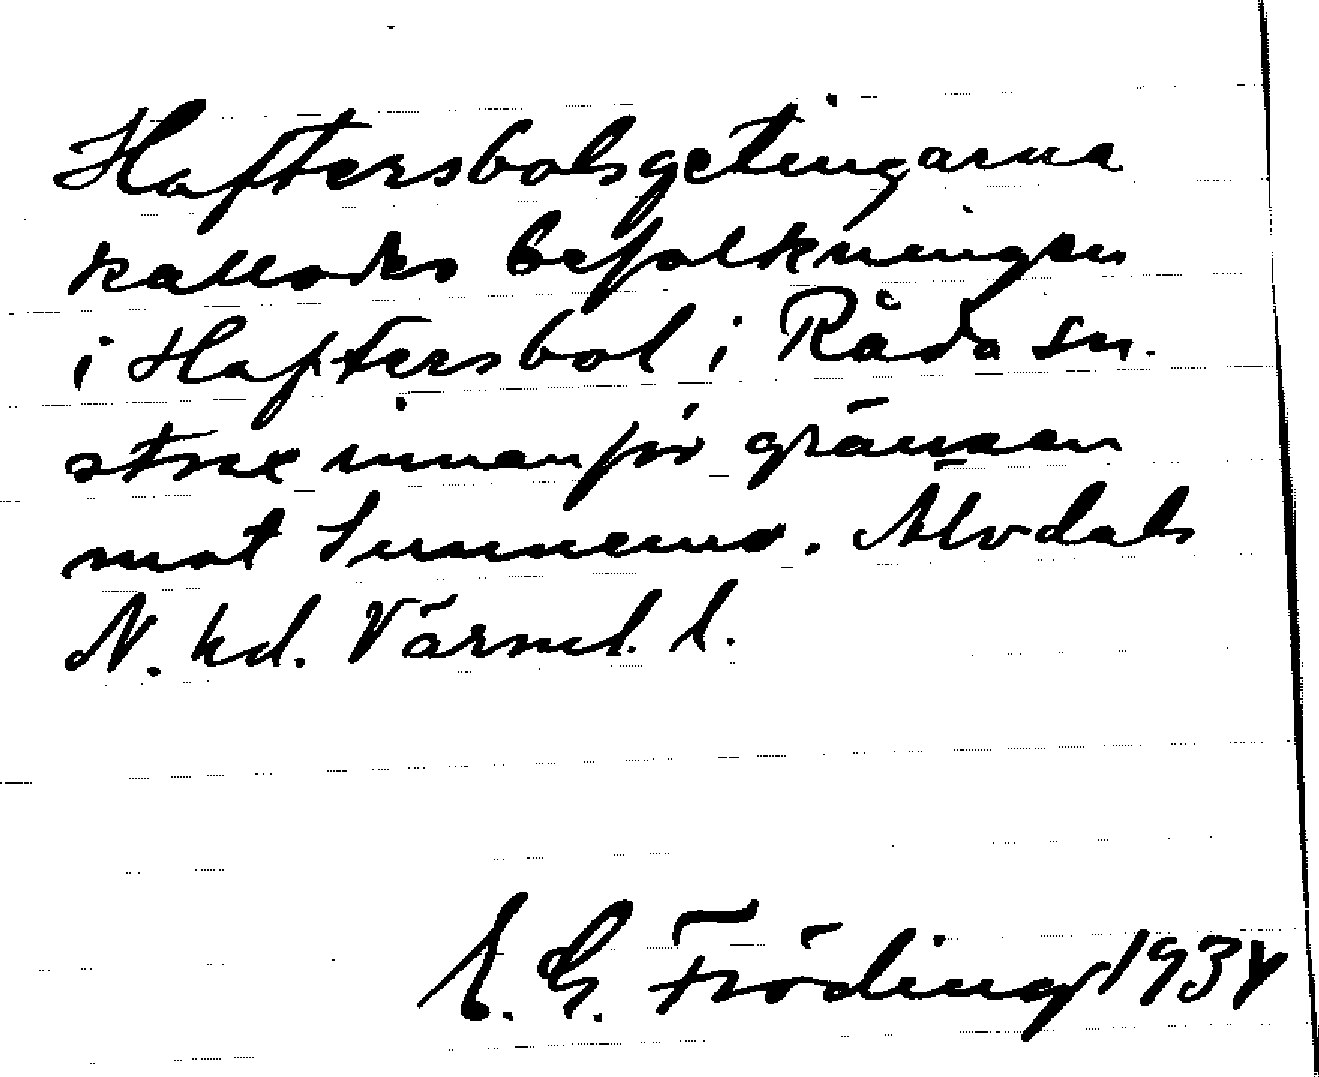 Haftersbolsgetingarna
kallades befolkningen
i Haftersbol i Råda sn.
strax innanför gränsen
mot Sunnemo. Älvdals
N. hd. Värml. l.
E. G. Fröding 1934